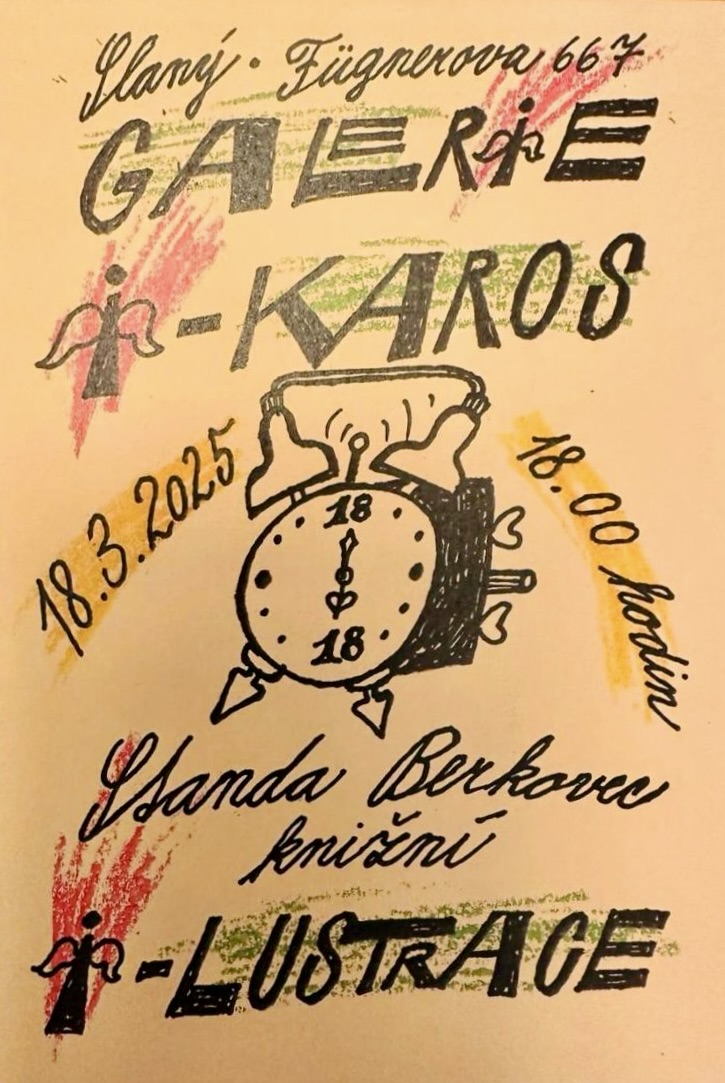 Slaný · Fügnerova 667
GALERiE
i-KAROS
18.3.2025
18.00 hodin
18
18
Standa Berkovec
knižní
i-LUSTRACE